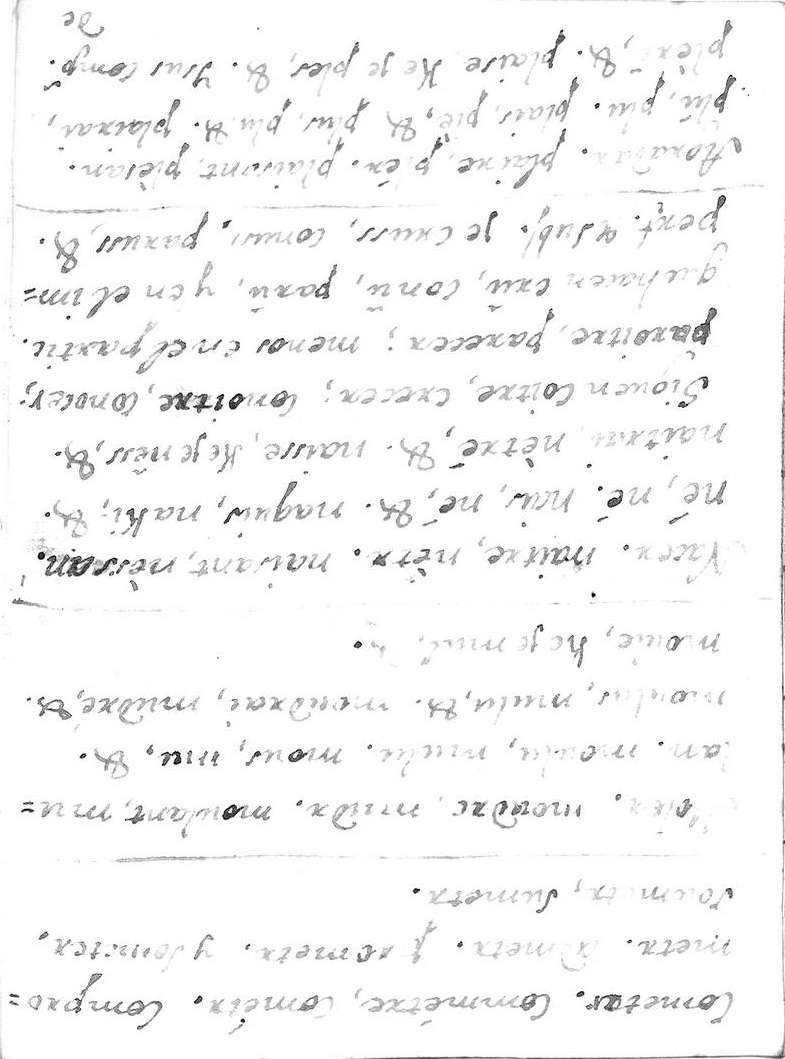 Cometer. Commétre, cométr. Compro=
metr. admetr. prometr. y someter,
soumetr, sumetr.
Moler. moudre, mudr. moulant, mu=
lan. moulu, mulu. mous, mu, &.
moulus, mulu, &. moudrai, mudré, &.
moule, ke je mul, &.
Nacer. naitre, nètr. naisant, nèssan.
né, né. nais, né, &. naquis, naki, &.
naitrai, nètré, &. naisse, ke je nèss, &.
Siguen coitre, crecer; conoitre, conocer;
paroitre, parecer; menos en el partic.
que hacen crŭ, conŭ, parŭ, y en el im=
perf. d subj. je cruss, conuss, paruss, &.
Agradar. plaire, plér. plaisant, plèsan.
plu, plu. plais, plé, &. plus, plu &. plairai,
plèré, &. plaise, ke je ples, &. Y sus comp.s
de